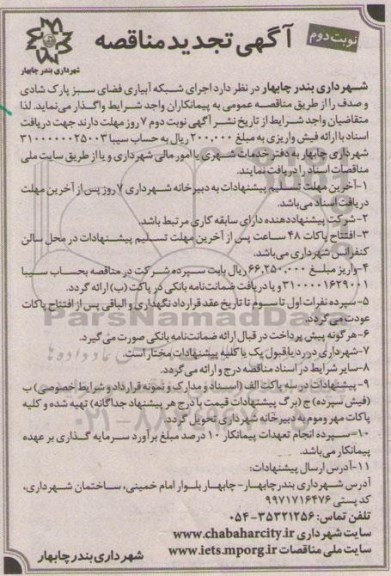 نوبت دوم
آگهی تجدید مناقصه
شهرداری بندر چابهار
شهرداری بندر چابهار در نظر دارد اجرای شبکه آبیاری فضای سبز پارک شادی
و صدف را از طریق مناقصه عمومی به پیمانکاران واجد شرایط واگذار می‌نماید. لذا
متقاضیان واجد شرایط از تاریخ نشر آگهی نوبت دوم ۷ روز مهلت دارند جهت دریافت
اسناد با ارائه فیش واریزی به مبلغ ۲۰۰۰۰۰۰ ریال به حساب سیبا ۳۱۰۰۰۰۰۰۲۵۰۰۳
شهرداری چابهار به دفتر خدمات شهری یا امور مالی شهرداری و یا از طریق سایت ملی
مناقصات اسناد را دریافت نمایند.
۱-آخرین مهلت تسلیم پیشنهادات به دبیرخانه شهرداری ۷ روز پس از آخرین مهلت
دریافت اسناد می‌باشد.
۲-شرکت پیشنهاددهنده دارای سابقه کاری مرتبط باشد.
۳-افتتاح پاکات ۴۸ ساعت پس از آخرین مهلت تسلیم پیشنهادات در محل سالن
کنفرانس شهرداری می‌باشد.
۴-واریز مبلغ ۶۶,۲۵۰,۰۰۰ ریال بابت سپرده شرکت در مناقصه بحساب سیبا
۳۱۰۰۰۰۱۶۲۹۰۰۱ و یا دریافت ضمانت‌نامه بانکی در پاکت (ب) ارائه گردد.
۵-سپرده نفرات اول تا سوم تا تاریخ عقد قرارداد نگهداری و الباقی پس از افتتاح پاکات
عودت می‌گردد.
۶-هرگونه پیش پرداخت در قبال ارائه ضمانت‌نامه بانکی صورت می‌گیرد.
۷-شهرداری در رد یا قبول یک یا کلیه پیشنهادات مختار است.
۸-سایر شرایط در اسناد مناقصه درج و ارائه می‌گردد.
۹-پیشنهادات در سه پاکت الف (اسناد و مدارک و نمونه قرارداد و شرایط خصوصی) ب
(فیش سپرده) ج (برگ پیشنهادات قیمت با درج هر پیشنهاد جداگانه) تهیه شده و کلیه
پاکات مهر و موم به دبیرخانه شهرداری تحویل گردد.
۱۰-سپرده انجام تعهدات پیمانکار ۱۰ درصد مبلغ برآورد سرمایه گذاری بر عهده
پیمانکار می‌باشد.
۱۱-آدرس ارسال پیشنهادات:
آدرس شهرداری بندر چابهار- چابهار بلوار امام خمینی، ساختمان شهرداری،
کد پستی ۹۹۷۱۷۱۶۴۷۶
تلفن تماس: ۳۵۳۲۱۲۵۶-۰۵۴
سایت شهرداری www.chabaharcity.ir
سایت ملی مناقصات www.iets.mporg.ir
شهرداری بندر چابهار
ParsNamadData